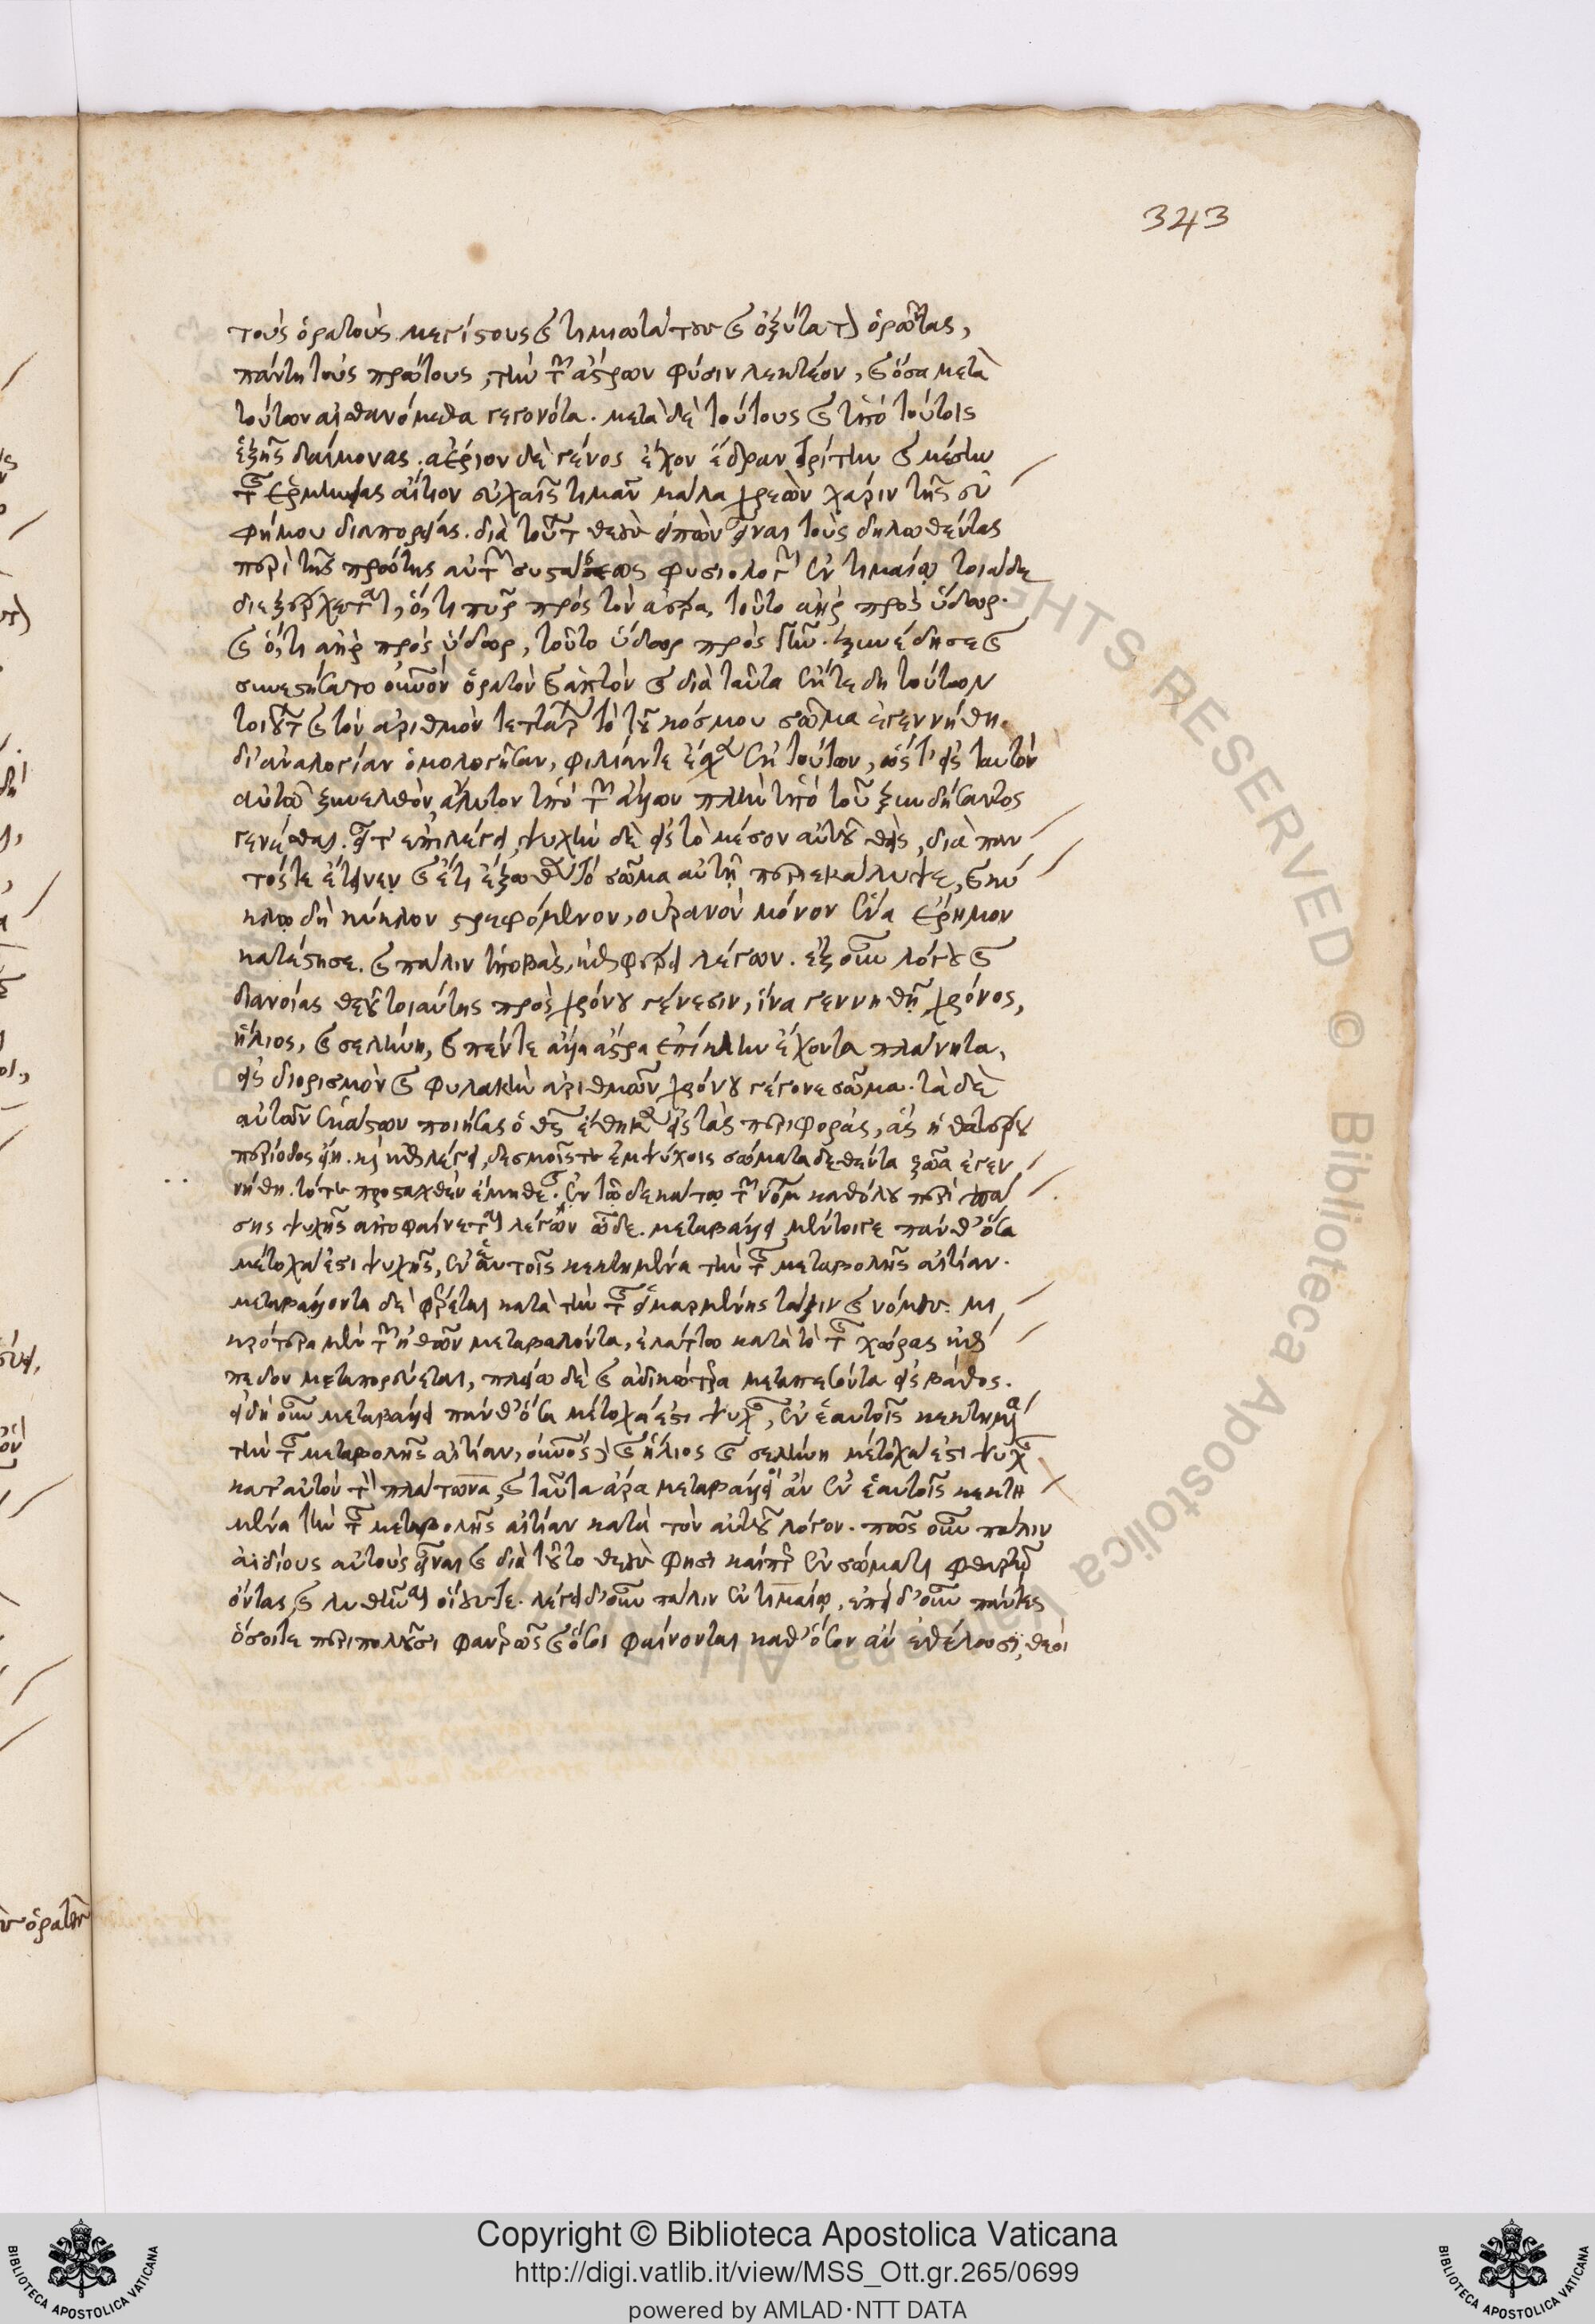 343
τοὺς ὁρατοὺς μεγίστους καὶ τιμιωτάτους καὶ ὀξύτατον ὁρῶντας,
πάντῃ τοὺς πρώτους, τὴν τῶν ἄστρων φύσιν λεκτέον, καὶ ὅσα μετὰ
τούτων αἰσθανόμεθα γεγονότα. μετὰ δὲ τούτους καὶ ὑπὸ τούτοις
ἑξῆς δαίμονας. ἀέριον δὲ γένος ἔχον ἕδραν τρίτην καὶ μέσην
τῆς ἑρμηνείας αἴτιον εὐχαῖς τιμᾶν μάλα χρεὼν χάριν τῆς εὐ
φήμου διαπορείας. διὰ τοῦτο θεοὺς εἰπὼν εἶναι τοὺς δηλωθέντας
περὶ τῆς πρώτης αὐτῶν συστάσεως φυσιολογῶν ἐν τιμαίῳ τοιάδε
διεξέρχεται, ὅ, τι πῦρ πρὸς τὸν ἀέρα, τοῦτο ἀὴρ πρὸς ὕδωρ.
καὶ ὅ, τι ἀὴρ πρὸς ὕδωρ, τοῦτο ὕδωρ πρὸς γῆν. ξυνέδησε καὶ
συνεστήσατο οὐρανὸν ὁρατὸν καὶ ἁπτὸν καὶ διὰ ταῦτα ἔκ τε δὴ τούτων
τοιούτων καὶ τὸν ἀριθμὸν τεττάρων τὸ τοῦ κόσμου σῶμα ἐγεννήθη
δι' ἀναλογίαν ὁμολογῆσαν, φιλίαν τε ἔσχεν ἐκ τούτων, ὥστ' εἰς ταυτὸν
αὑτῷ ξυνελθὸν, ἄλυτον ὑπό τῶν ἄλλων πλὴν ὑπὸ τοῦ ξυνδήσαντος
γενέσθαι. εἶτ' ἐπιλέγει, ψυχὴν δὲ εἰς τὸ μέσον αὐτοῦ θεὶς, διὰ παν
τός τε ἔτεινεν καὶ ἔτι ἔξωθεν τὸ σῶμα αὐτῇ περιεκάλυψε, καὶ κύ
κλῳ δὴ κύκλον στρεφόμενον, οὐρανὸν μόνον ἕνα ἔρημον
κατέστησε. καὶ πάλιν ὑποβὰς, ἐπιφέρει λέγων. ἐξ οὖν λόγου καὶ
διανοίας θεοῦ τοιαύτης πρὸς χρόνου γένεσιν, ἵνα γεννηθῇ χρόνος,
ἥλιος, καὶ σελήνη, καὶ πέντε ἄλλα ἄστρα ἐπίκλην ἔχοντα πλάνητα,
εἰς διορισμὸν καὶ φυλακὴν ἀριθμῶν χρόνου γέγονε σῶμα. τὰ δὲ
αὐτῶν ἑκάστων ποιήσας ὁ θεὸς ἔθηκεν εἰς τὰς περιφορὰς, ἃς ἡ θατέρου
περίοδος ᾔει. καὶ ἐπιλέγει, δεσμοῖς τε ἐμψύχοις σώματα δεθέντα ζῶα ἐγεν
νήθη. τό τε προσταχθὲν ἔμαθε. ἐν τῷ δεκάτῳ τῶν νόμων καθόλου περὶ πά
σης ψυχῆς ἀποφαίνεται λέγων ὧδε. μεταβάλλει μέντοιγε πάνθ' ὅσα
μέτοχά ἐστι ψυχῆς, ἐν ἑαυτοῖς κεκτημένα τὴν τῆς μεταβολῆς αἰτίαν.
μεταβάλλοντα δὲ φέρεται κατὰ τὴν τῆς εἱμαρμένης τάξιν καὶ νόμον. μι
κρότερα μὲν τῶν ἠθῶν μεταβαλόντα, ἐλάττω κατὰ τὸ τῆς χώρας ἐπί
πεδον μεταπορεύεται, πλείω δὲ καὶ ἀδικώτερα μεταπεσόντα εἰς βάθος.
εἰ δὴ οὖν μεταβάλλει πάνθ' ὅσα μέτοχά ἐστι ψυχῆς, ἐν ἑαυτοῖς κεκτημένα
τὴν τῆς μεταβολῆς αἰτίαν, οὐρανὸς δὲ καὶ ἥλιος καὶ σελήνη μέτοχά ἐστι ψυχῆς
κατ' αὐτὸν τὸν πλάτωνα, καὶ ταῦτα ἄρα μεταβάλλοι ἂν ἐν ἑαυτοῖς κεκτη
μένα τὴν τῆς μεταβολῆς αἰτίαν κατὰ τὸν αὐτοῦ λόγον. πῶς οὖν πάλιν
ἀϊδίους αὐτοὺς εἶναι καὶ διὰ τοῦτο θεοὺς φησὶ καίπερ ἐν σώματι φθαρτῷ
ὄντας, καὶ λυθῆναι οἵους τε. λέγει δ' οὖν πάλιν ἐν τιμαίῳ, ἐπεὶ δ' οὖν πάντες
ὅσοι τε περιπολοῦσι φανερῶς καὶ ὅσοι φαίνονται καθ' ὅσον ἂν ἐθέλωσι, θεοὶ
Copyright © Biblioteca Apostolica Vaticana
http://digi.vatlib.it/view/MSS_Ott.gr.265/0699
powered by AMLAD·NTT DATA